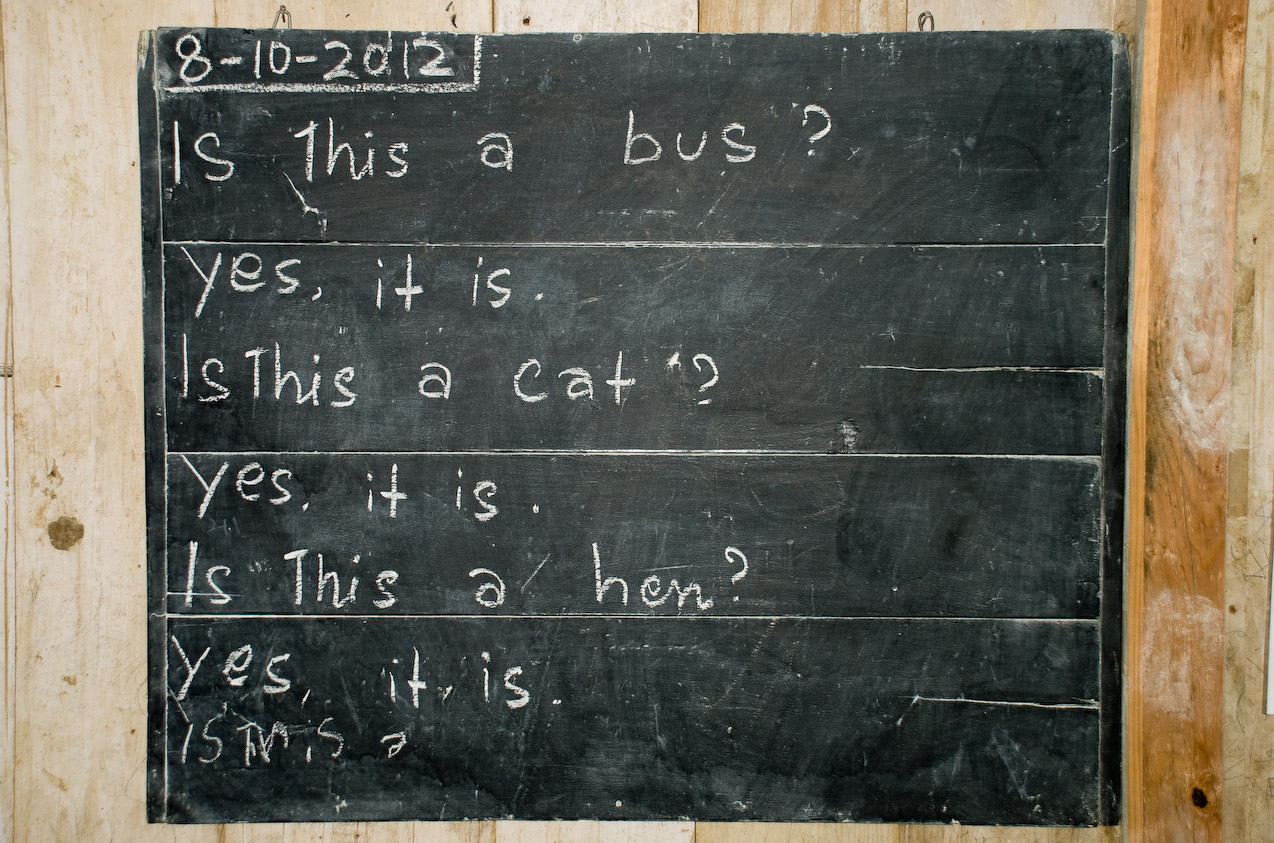 8-10-2012
Is This a bus?
yes, it is.
Is This a cat?
yes, it is.
Is This a hen?
yes, it is.
Is This a